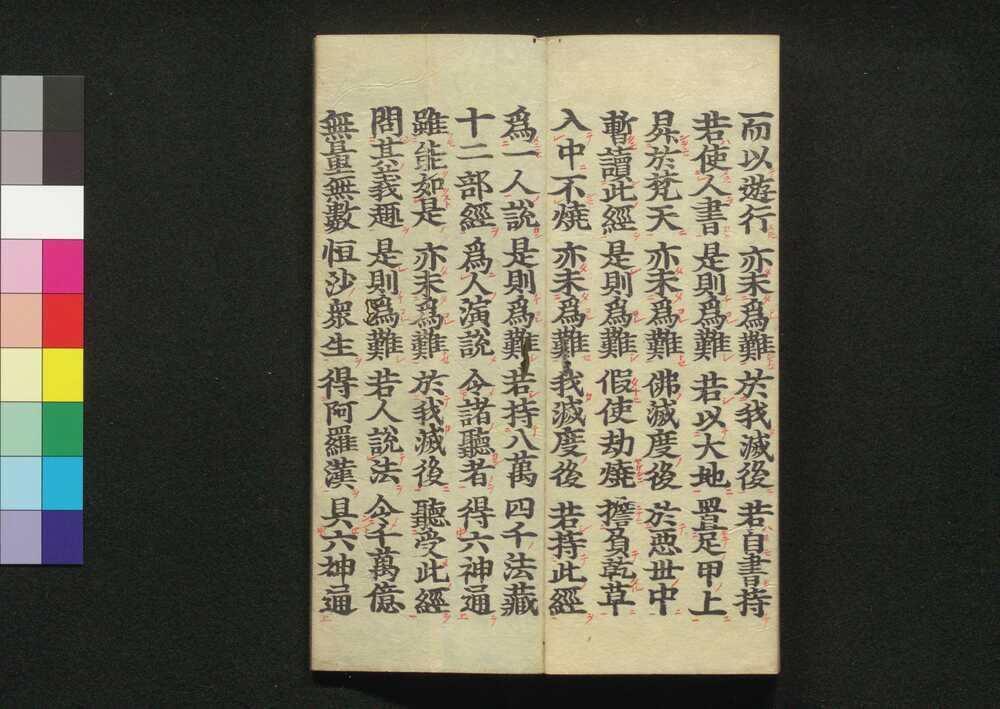 而以遊行 亦未為難 於我滅後 若自書持
若使人書 是則為難 若以大地 置足甲上
昇於梵天 亦未為難 佛滅度後 於惡世中
暫讀此經 是則為難 假使劫燒 擔負乾草
入中不燒 亦未為難 我滅度後 若持此經
為一人說 是則為難 若持八萬 四千法藏
十二部經 為人演說 令諸聽者 得六神通
雖能如是 亦未為難 於我滅後 聽受此經
問其義趣 是則為難 若人說法 令千萬億
無量無數 恒沙眾生 得阿羅漢 具六神通